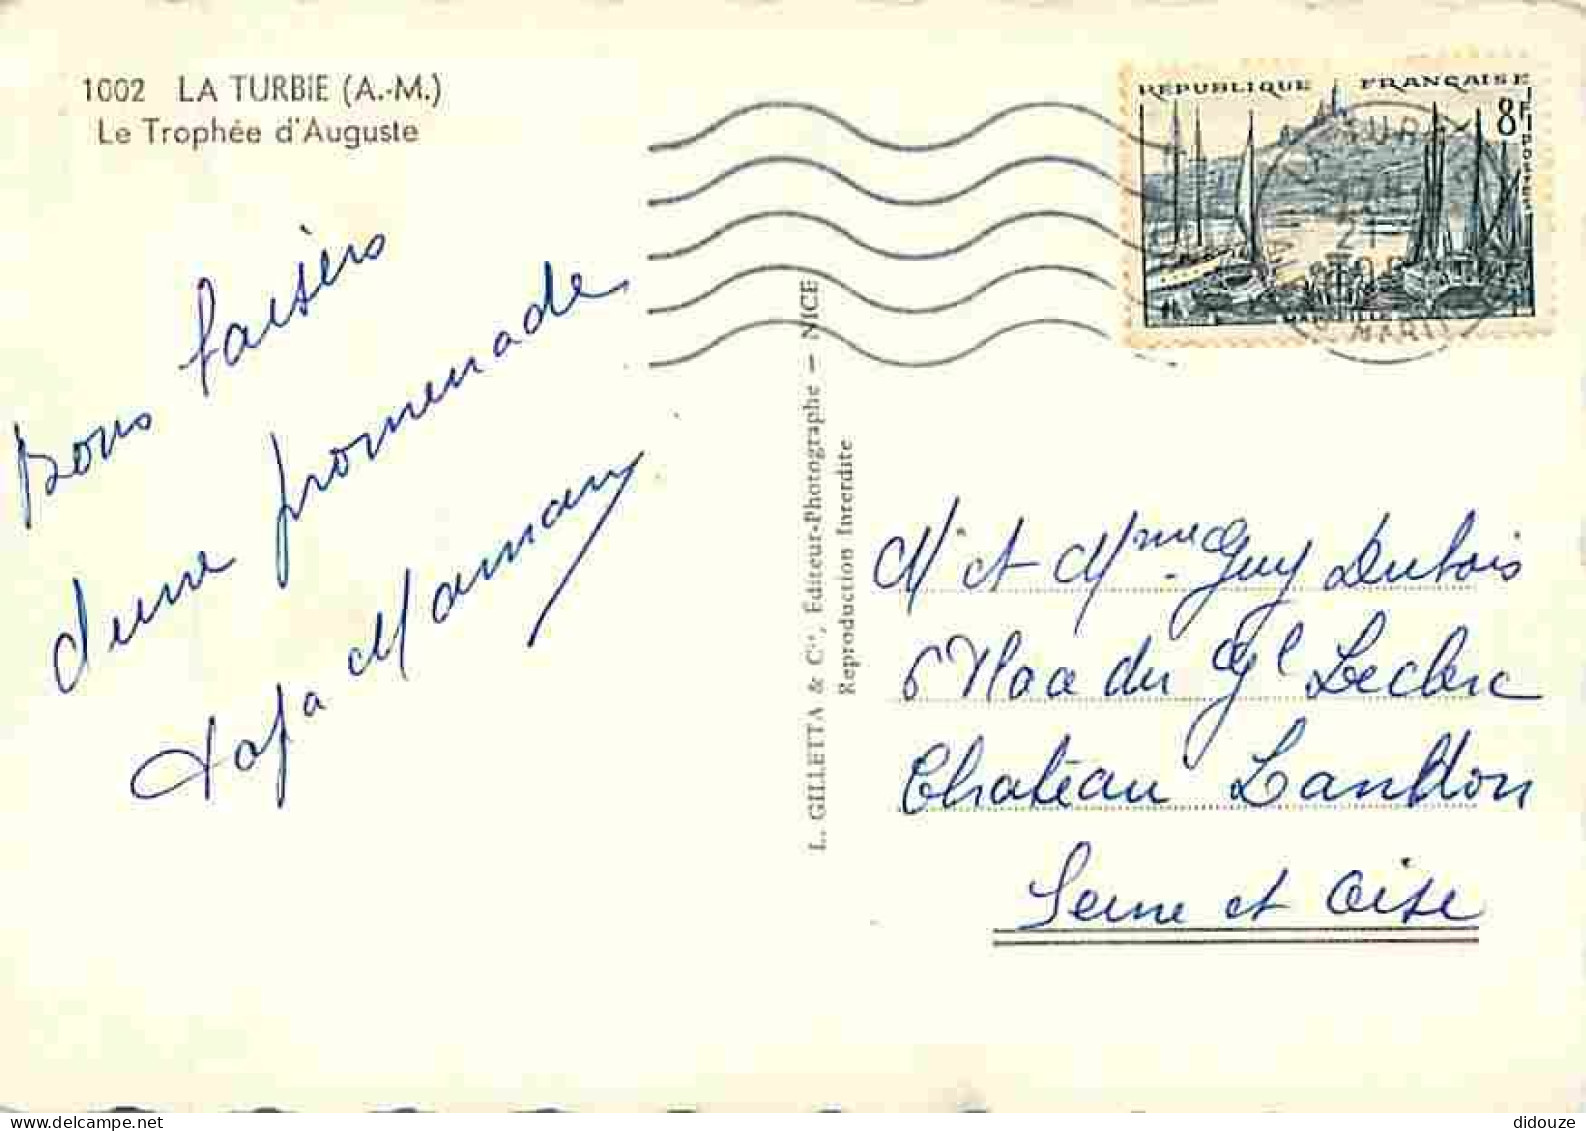 1002 LA TURBIE (A.-M.)
Le Trophée d'Auguste
Bons baisers
d'une promenade
Papa Maman
L. GILLETTA & Cie, Editeur-Photographe — NICE
Reproduction Interdite
REPUBLIQUE FRANÇAISE
8F
POSTES
MARSEILLE
LA TURBIE
21
MARIT
Mr et Mme Guy Dubois
6 Place du Gl Leclerc
Château Landon
Seine et Oise
didouze